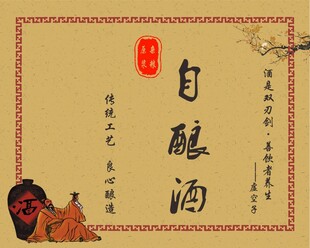 酒是双刃剑·善饮者养生
——虚空子
自酿酒
杂粮
原浆
传统工艺 良心酿造
酒